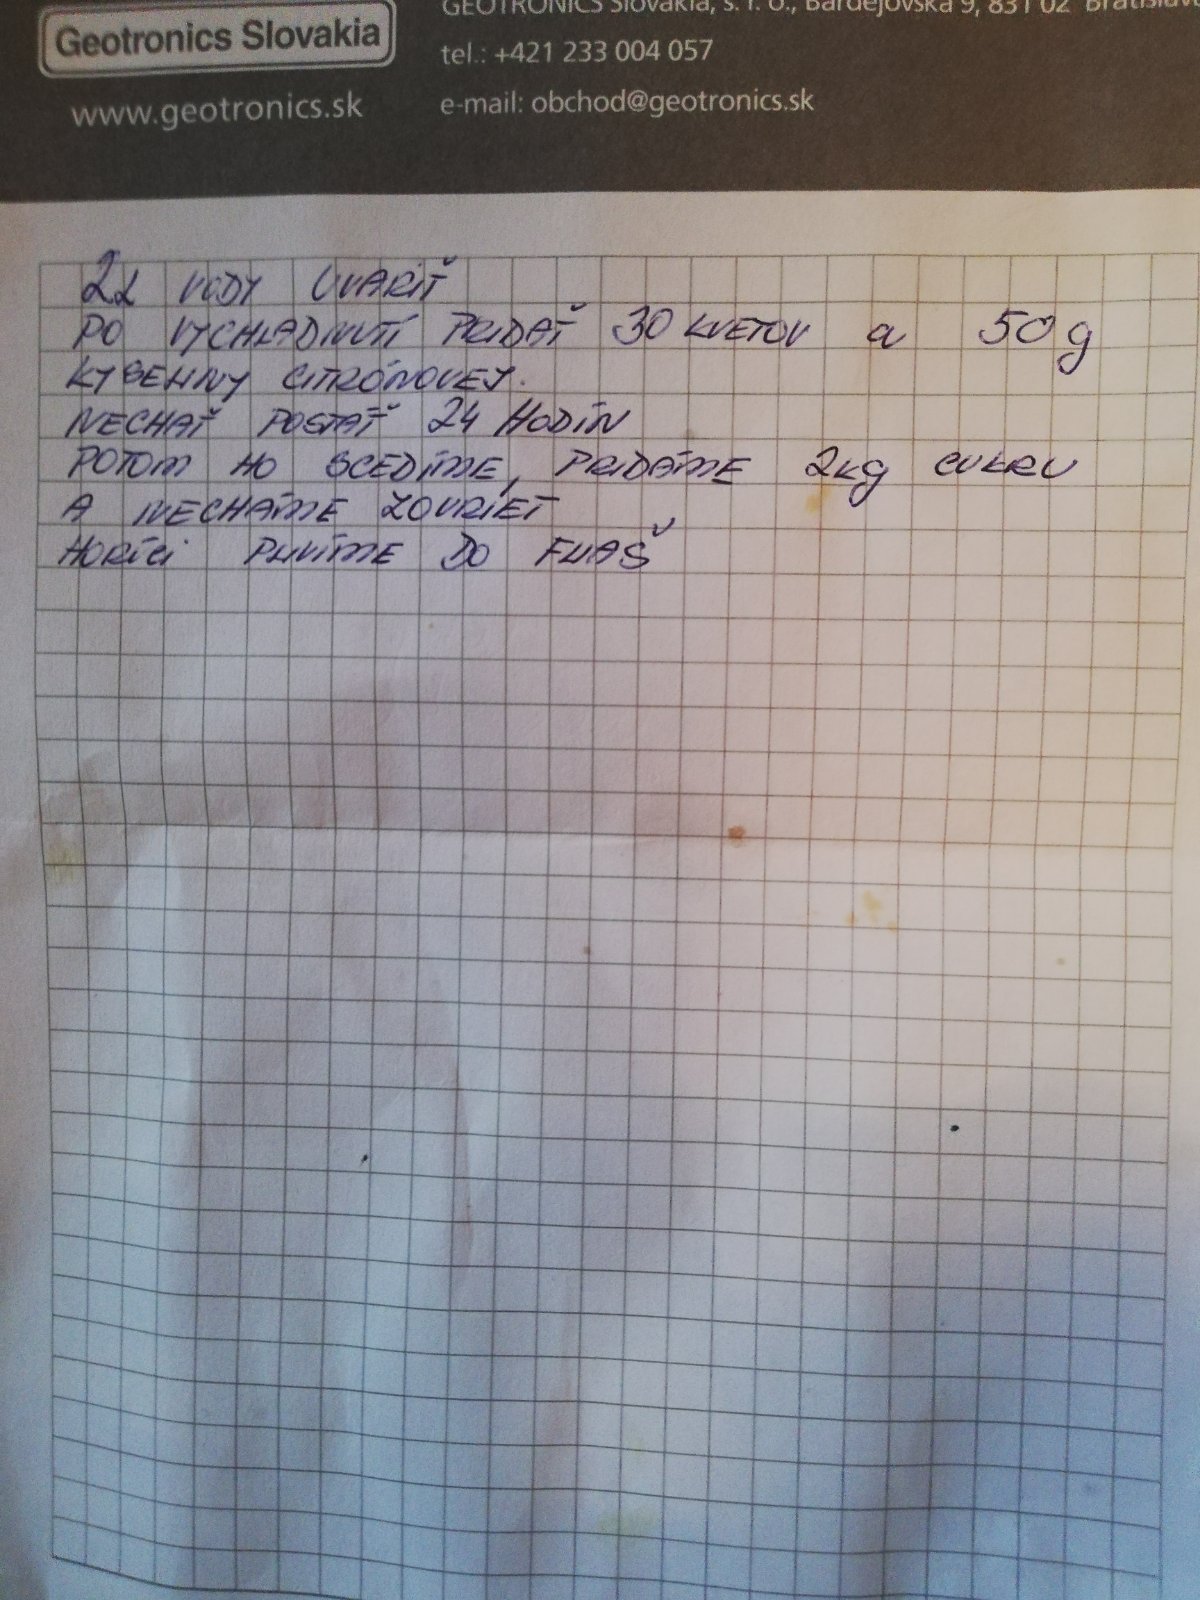 GEOTRONICS Slovakia, s. r. o., Bardejovská 9, 831 02 Bratislava
Geotronics Slovakia
tel.: +421 233 004 057
www.geotronics.sk
e-mail: obchod@geotronics.sk
2L VODY UVARIŤ
PO VYCHLADNUTÍ PRIDAŤ 30 KVETOV a 50g
KYSELINY CITRÓNOVEJ.
NECHAŤ POSTÁŤ 24 HODÍN
POTOM HO SCEDÍME, PRIDÁME 2kg CUKRU
A NECHÁME ZOVRIEŤ
HORÍCI PLNÍME DO FLIAŠ